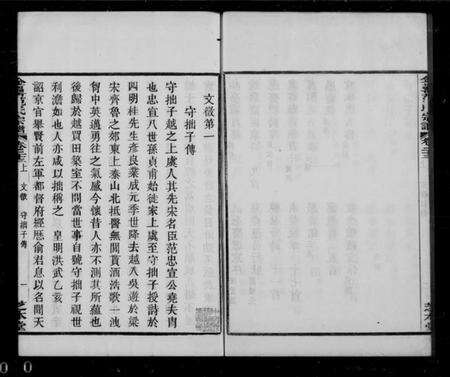 文徵第一
守拙子傳
守拙子越之上虞人其先宋名臣范忠宣公堯夫肖
也忠宣八世孫貞甫始徙家上虞至守拙子授詩於
四明桂先生彥良業成元季世降去越入吳遊於梁
宋齊魯之郊東上泰山北抵醫無閭貰酒浩歌一洩
胷中英邁勇往之氣感今懷昔人亦不測其所蘊也
後歸於越買田築室不問當世事自號守拙子視世
利澹如也人亦咸以拙稱之 皇明洪武乙亥
詔京官舉賢前左軍都督府經歷俞君息以名聞天
卷三十三上 文徵 守拙子傳 一